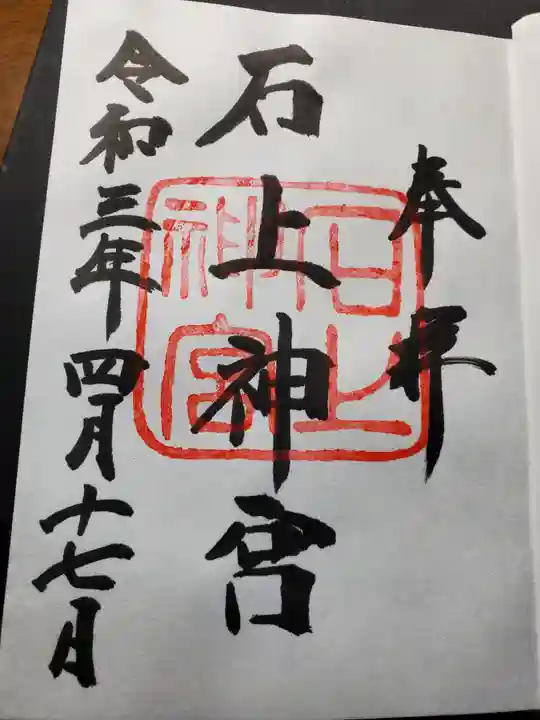 奉拝
石上神宮
令和三年四月十七日
石上神宮